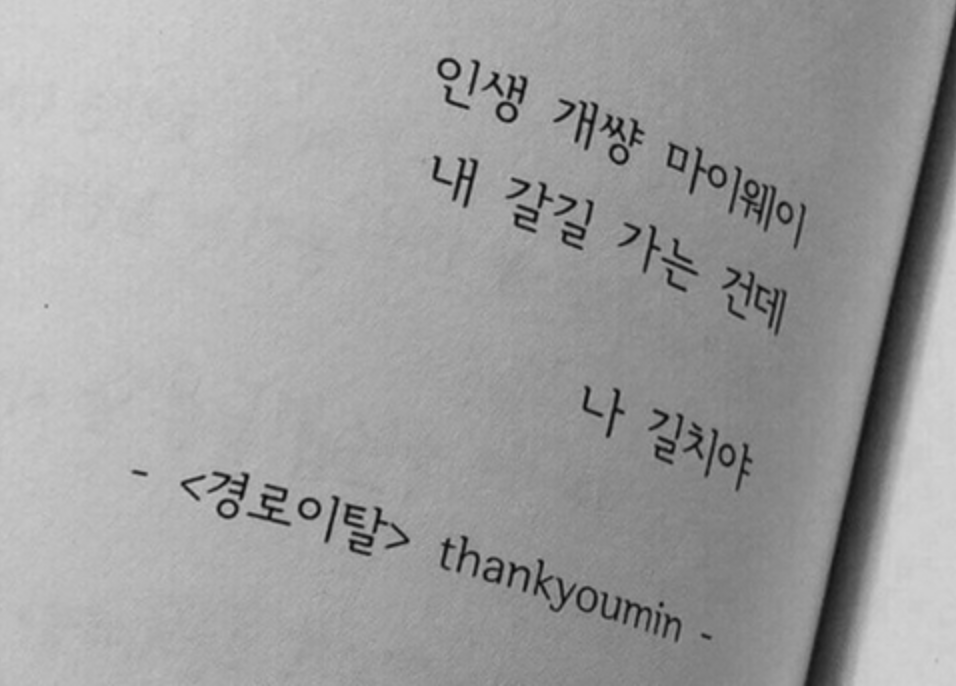 인생 개썅 마이웨이
내 갈길 가는 건데
나 길치야
- <경로이탈> thankyoumin -